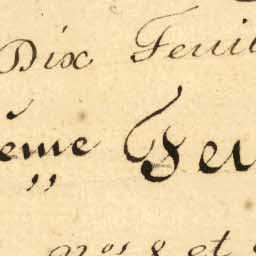 Dix Feuil
eme Feu
nos 8 et